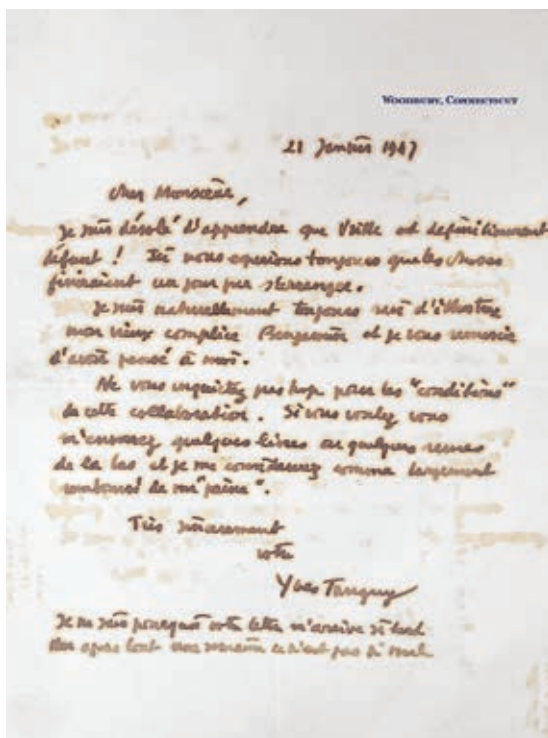 WOODBURY, CONNECTICUT
21 Janvier 1947
Cher Monsieur,
Je suis désolé d'apprendre que VRILLE est definitivement
défunt ! Ici nous esperions toujours que les choses
finiraient un jour par s'arranger.
Je suis naturellement toujours ravi d'illustrer
mon vieux complice et je vous remercie
d'avoir pensé à moi.
Ne vous inquietez pas trop pour les "conditions"
de cette collaboration. Si vous voulez vous
m'enverrez quelques livres ou quelques revues
de la bas et je me considererez comme largement
de ma "peine".
Très sincerement
votre
Yves Tanguy
Je ne sais pourquoi votre lettre m'arrive si tard
apres tout une semaine ce n'est pas si mal